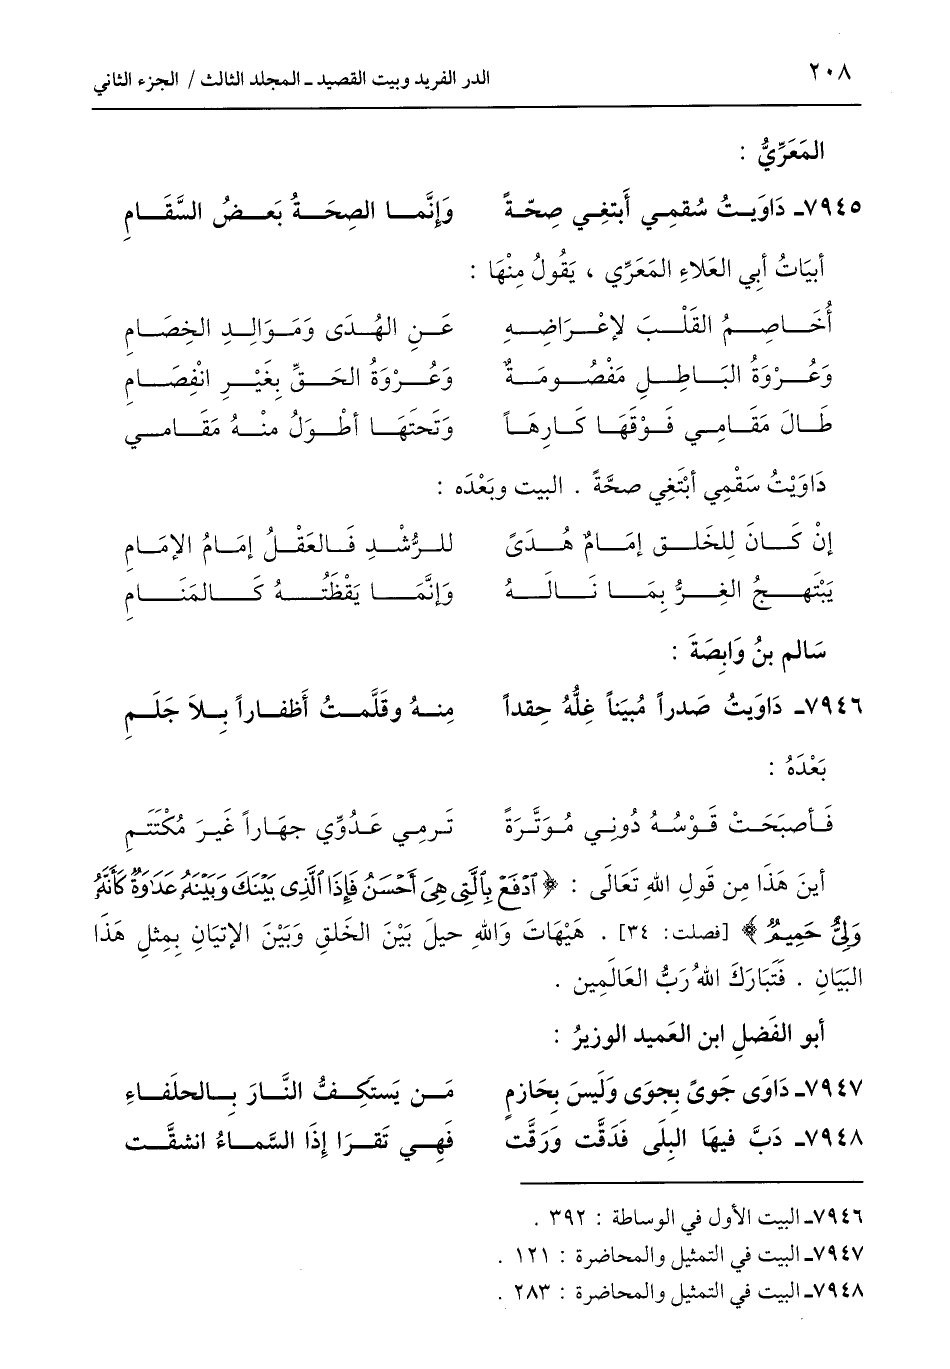 ٢٠٨ الدر الفريد وبيت القصيد ـ المجلد الثالث / الجزء الثاني
المَعَرِّيُّ :
٧٩٤٥ـ دَاوَيتُ سُقمِي أَبتغِي صِحّةً وَإِنَّمـا الصِحَـةُ بَعـضُ السَّقَـامِ
أبيَاتُ أبي العَلاءِ المَعَرِّي ، يَقُولُ مِنْهَا :
أُخَـاصِـمُ القَلْـبَ لإعْـرَاضِـهِ عَـنِ الهُـدَى وَمَـوَالِـدِ الخِصَـامِ
وَعُـرْوَةُ البَـاطِـلِ مَفْصُـومَـةٌ وَعُـرْوَةُ الحَـقِّ بِغَيْـرِ انْفِصَـامِ
طَالَ مَقَـامِـي فَـوْقَهَـا كَـارِهَـاً وَتَحتَهَـا أطْـوَلُ منْـهُ مَقَـامـي
دَاوَيْتُ سَقْمِي أبْتَغِي صحَّةً . البيت وبَعْدَه :
إنْ كَـانَ لِلخَلـق إمَـامٌ هُـدَىً للـرُّشْـدِ فَـالعَقْـلُ إمَـامُ الإمَـامِ
يَبْتَهِـجُ الغِـرُّ بِمَـا نَـالَـهُ وَإنَّمَـا يَقْظَتُـهُ كَـالمَنَـامِ
سَالم بنُ وَابِصَةَ :
٧٩٤٦ـ دَاوَيتُ صَدراً مُبَيَناً غِلُّهُ حِقداً مِنـهُ وقَلَّمـتُ أَظفـاراً بِـلاَ جَلَـمِ
بَعْدَهُ :
فَـأصبَحَـتْ قَـوْسُـهُ دُونِـي مُـوَتَّـرَةً تَـرمِـي عَـدُوِّي جهَـاراً غَيـرَ مُكْتَتَـمِ
أينَ هَذَا مِن قَولِ اللهِ تَعَالَى : ﴿ ٱدۡفَعۡ بِٱلَّتِى هِىَ أَحۡسَنُ فَإِذَا ٱلَّذِى بَيۡنَكَ وَبَيۡنَهُۥ عَدَٰوَةٌ كَأَنَّهُۥ
وَلِىٌّ حَمِيمٌ ﴾ [فصلت: ٣٤] . هَيْهَاتَ وَاللهِ حيلَ بَيْنَ الخَلقِ وَبَيْنَ الإتيَانِ بِمِثلِ هَذَا
البَيَانِ . فَتَبَارَكَ اللهُ رَبُّ العَالَمِين .
أبو الفَضلِ ابن العَميد الوزيرُ :
٧٩٤٧ـ دَاوَى جَوىً بِجوَى وَلَيسَ بِحَازمٍ مَـن يَستَكِـفُّ النَّـارَ بِـالحلَفـاءِ
٧٩٤٨ـ دَبَّ فيهَا البِلَى فَدَقَّت وَرَقَّت فَهِـي تَقـرَا إِذَا السَّمـاءُ انشقَّـت
٧٩٤٦ـ البيت الأول في الوساطة : ٣٩٢ .
٧٩٤٧ـ البيت في التمثيل والمحاضرة : ١٢١ .
٧٩٤٨ـ البيت في التمثيل والمحاضرة : ٢٨٣ .